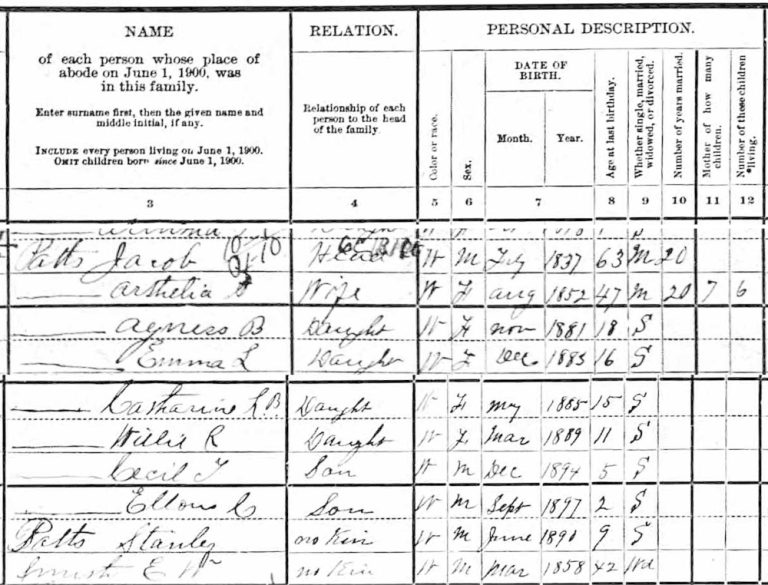 NAME
of each person whose place of
abode on June 1, 1900, was
in this family.
Enter surname first, then the given name and
middle initial, if any.
INCLUDE every person living on June 1, 1900.
OMIT children born since June 1, 1900.
RELATION.
Relationship of each
person to the head
of the family.
PERSONAL DESCRIPTION.
Color or race.
Sex.
DATE OF
BIRTH.
Month.
Year.
Age at last birthday.
Whether single, married,
widowed, or divorced.
Number of years married.
Mother of how many
children.
Number of these children
living.
3 4 5 6 7 8 9 10 11 12
Potts Jacob Head W M July 1837 63 M 20
Wife W F aug 1852 47 M 20 7 6
Agness B Daught W F nov 1881 18 S
Emma L Daught W F Dec 1883 16 S
Catharine L B Daught W F may 1885 15 S
Willie R Daught W F Mar 1889 11 S
Cecil T Son W M Dec 1894 5 S
Son W M Sept 1897 2 S
Potts Stanley no Kin W M June 9 S
no Kin W M Mar 1858 42 Wd